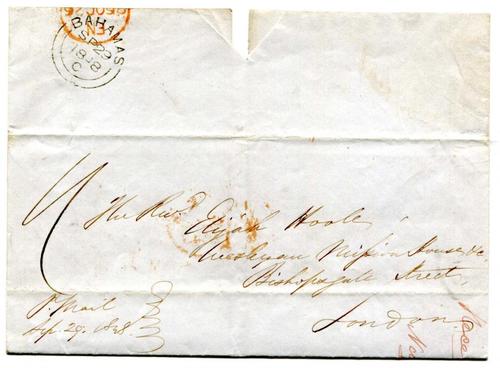 BAHAMAS
SP 29
1848
C
The Revd. Elijah Hoole
Wesleyan Mission House &c
Bishopsgate Street,
London.
P. Mail
Sep. 29. 1848.